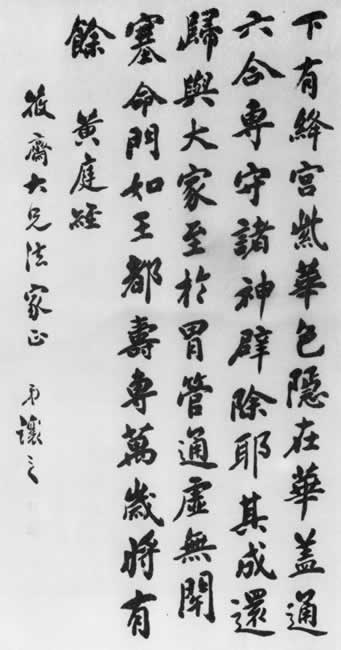 下有絳宮紫華色隱在華蓋通
六合專守諸神辟除耶其成還
歸與大家至於胃管通虛無閉
塞命門如王都壽專萬歲將有
餘 黃庭經
筱齋大兄法家正 弟讓之